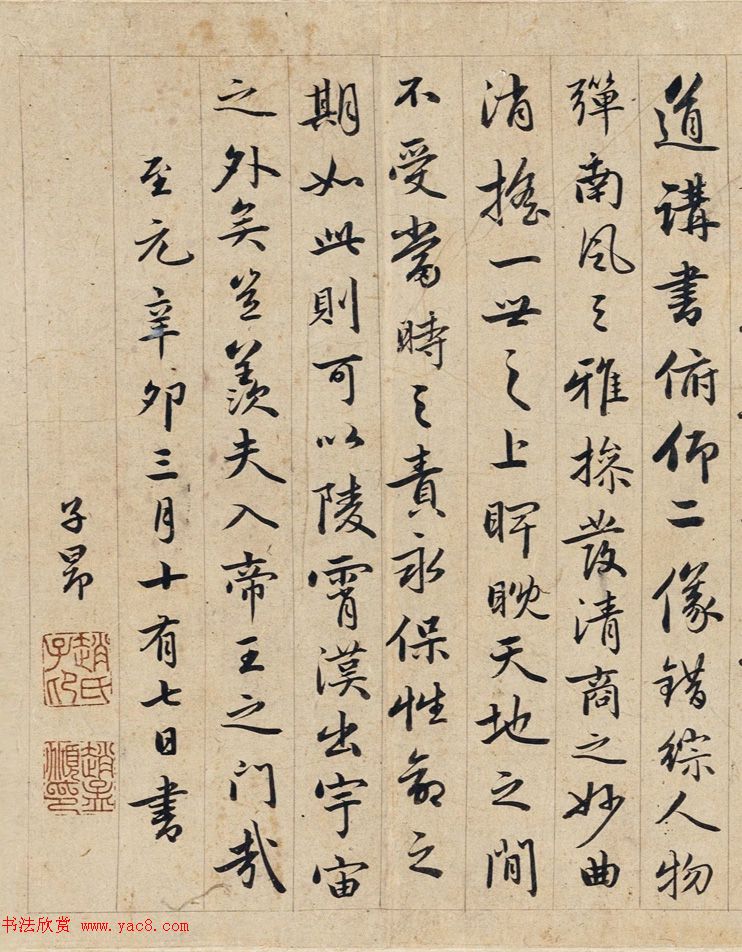 道講書俯仰二儀錯綜人物
彈南風之雅操發清商之妙曲
消搖一世之上睥睨天地之間
不受當時之責永保性命之
期如此則可以陵霄漢出宇宙
之外矣豈羨夫入帝王之門哉
至元辛卯三月十有七日書
子昂
趙氏子印
趙孟頫印
书法欣赏 www.yac8.com